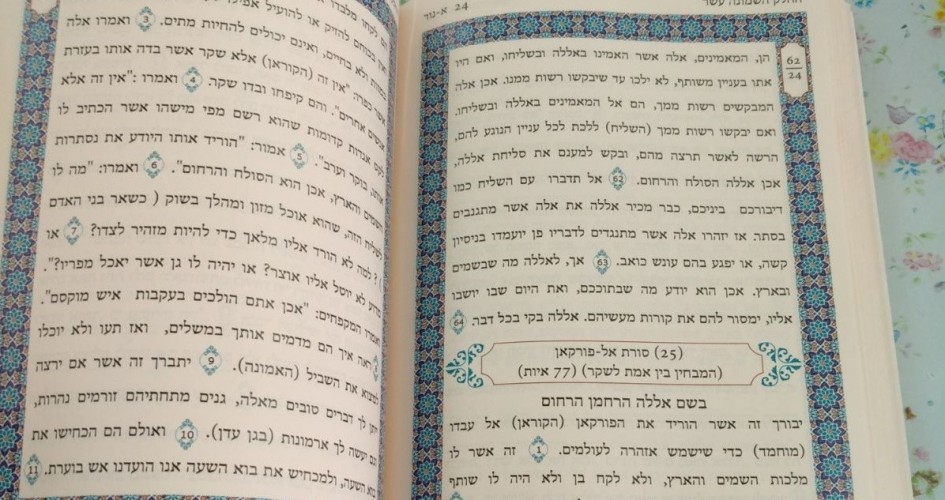 החלק השמונה עשר
24 א-נור
62
24
הן, המאמינים, אלה אשר האמינו באללה ובשליחו, ואם היו
אתו בעניין משותף, לא ילכו עד שיבקשו רשות ממנו. אכן אלה
המבקשים רשות ממך, הם אל המאמינים באללה ובשליחו.
ואם יבקשו רשות ממך (השליח) ללכת לכל עניין הנוגע להם,
הרשה לאשר תרצה מהם, ובקש למענם את סליחת אללה,
אכן אללה הסולח והרחום. 62 אל תדברו עם השליח כמו
דיבורכם ביניכם, כבר מכיר אללה את אלה אשר מתגנבים
בסתר. אז יזהרו אלה אשר מתנגדים לדבריו פן יועמדו בניסיון
קשה, או יפגע בהם עונש כואב. 63 אך, לאללה מה שבשמים
ובארץ. אכן הוא יודע מה שבתוככם, ואת היום שבו יושבו
אליו, ימסור להם את קורות מעשיהם. אללה בקי בכל דבר. 64
(25) סורת אל-פורקאן
(המבחין בין אמת לשקר) (77 איות)
בשם אללה הרחמן הרחום
יבורך זה אשר הוריד את הפורקאן (הקוראן) אל עבדו
(מוחמד) כדי שישמש אזהרה לעולמים. 1 זה אשר לו
מלכות השמים והארץ, ולא לקח בן ולא היה לו שותף
לקחו מלבדו
בכוחם להזיק או להועיל אפילו
ולא בחיים, ואינם יכולים להחיות מתים. 3 ואמרו אלה
כפרו: "אין זה (הקוראן) אלא שקר אשר בדה אותו בעזרת
אנשים אחרים". והם קיפחו ובדו שקר. 4 ואמרו: "אין זה אלא
אגדות קדומות שהוא רשם מפי מישהו אשר הכתיב לו
אותה, בוקר וערב". 5 אמור: "הוריד אותו היודע את נסתרות
השמים והארץ, אכן הוא הסולח והרחום". 6 ואמרו: "מה לו
לשליח הזה, שהוא אוכל מזון ומהלך בשוק ( כשאר בני האדם
)? למה לא הורד אליו מלאך כדי להיות מזהיר לצדו? 7 או
מדוע לא יוטל אליו אוצר? או יהיה לו גן אשר יאכל מפריו?".
ואמרו המקפחים: "אכן אתם הולכים בעקבות איש מוקסם".
8 ראה איך הם מדמים אותך במשלים, ואז תעו ולא יוכלו
למצוא את השביל (האמונה). 9 יתברך זה אשר אם ירצה
יתן לך דברים טובים מאלה, גנים מתחתיהם זורמים נהרות,
וגם יעשה לך ארמונות (בגן עדן). 10 ואולם הם הכחישו את
בוא השעה, ולמכחיש את בוא השעה אנו הועדנו אש בוערת. 11